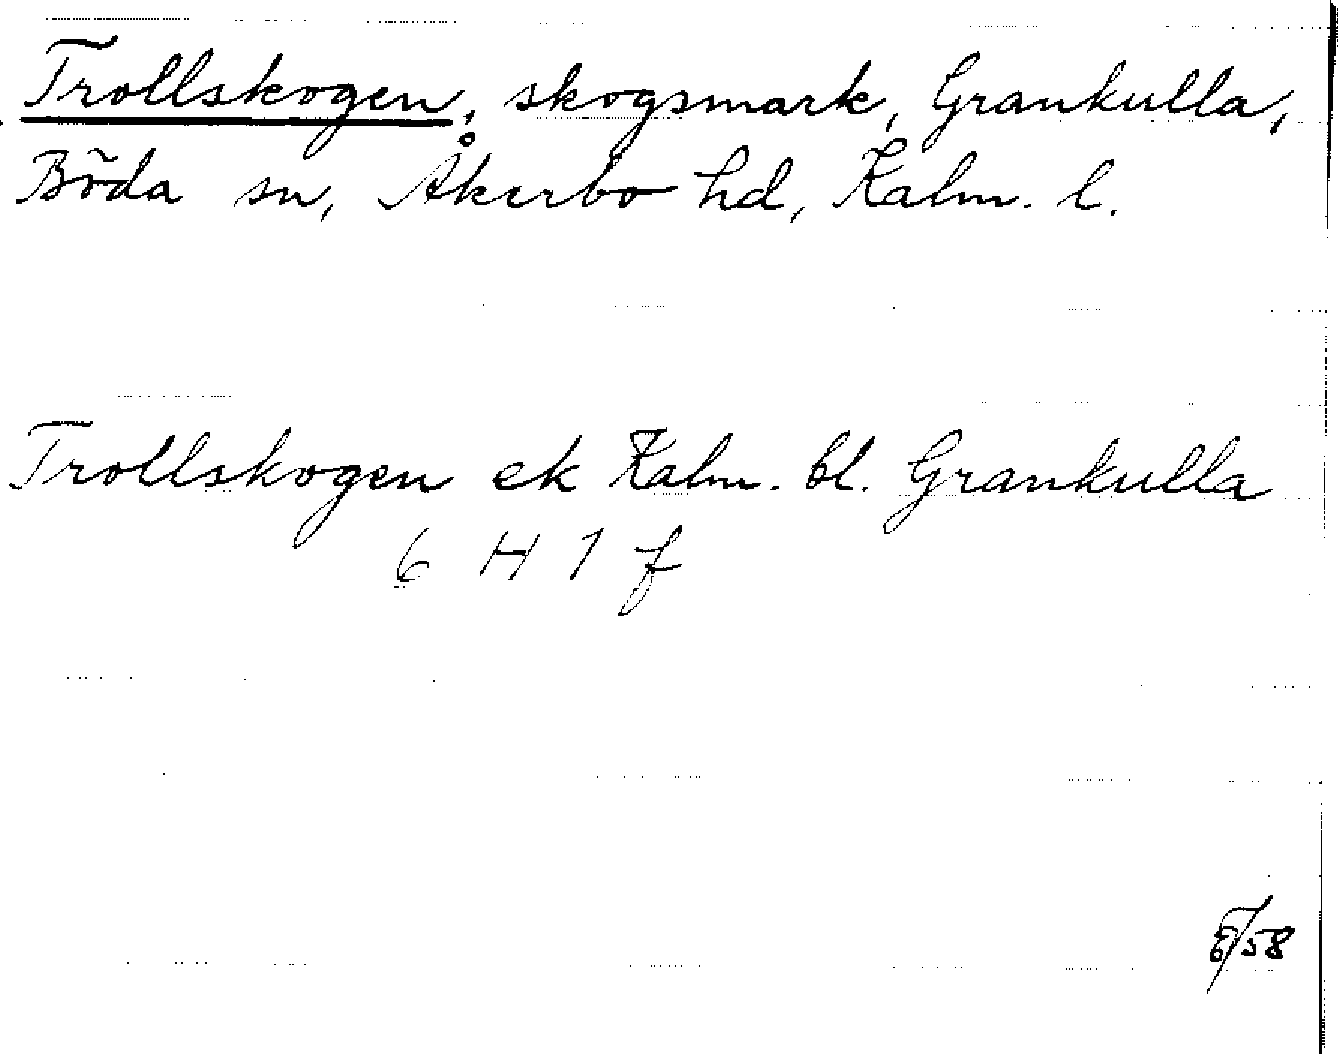 Trollskogen, skogsmark, Grankulla,
Böda sn, Åkerbo hd, Kalm. l.
Trollskogen ek Kalm. bl. Grankulla
6 H 1 f
58